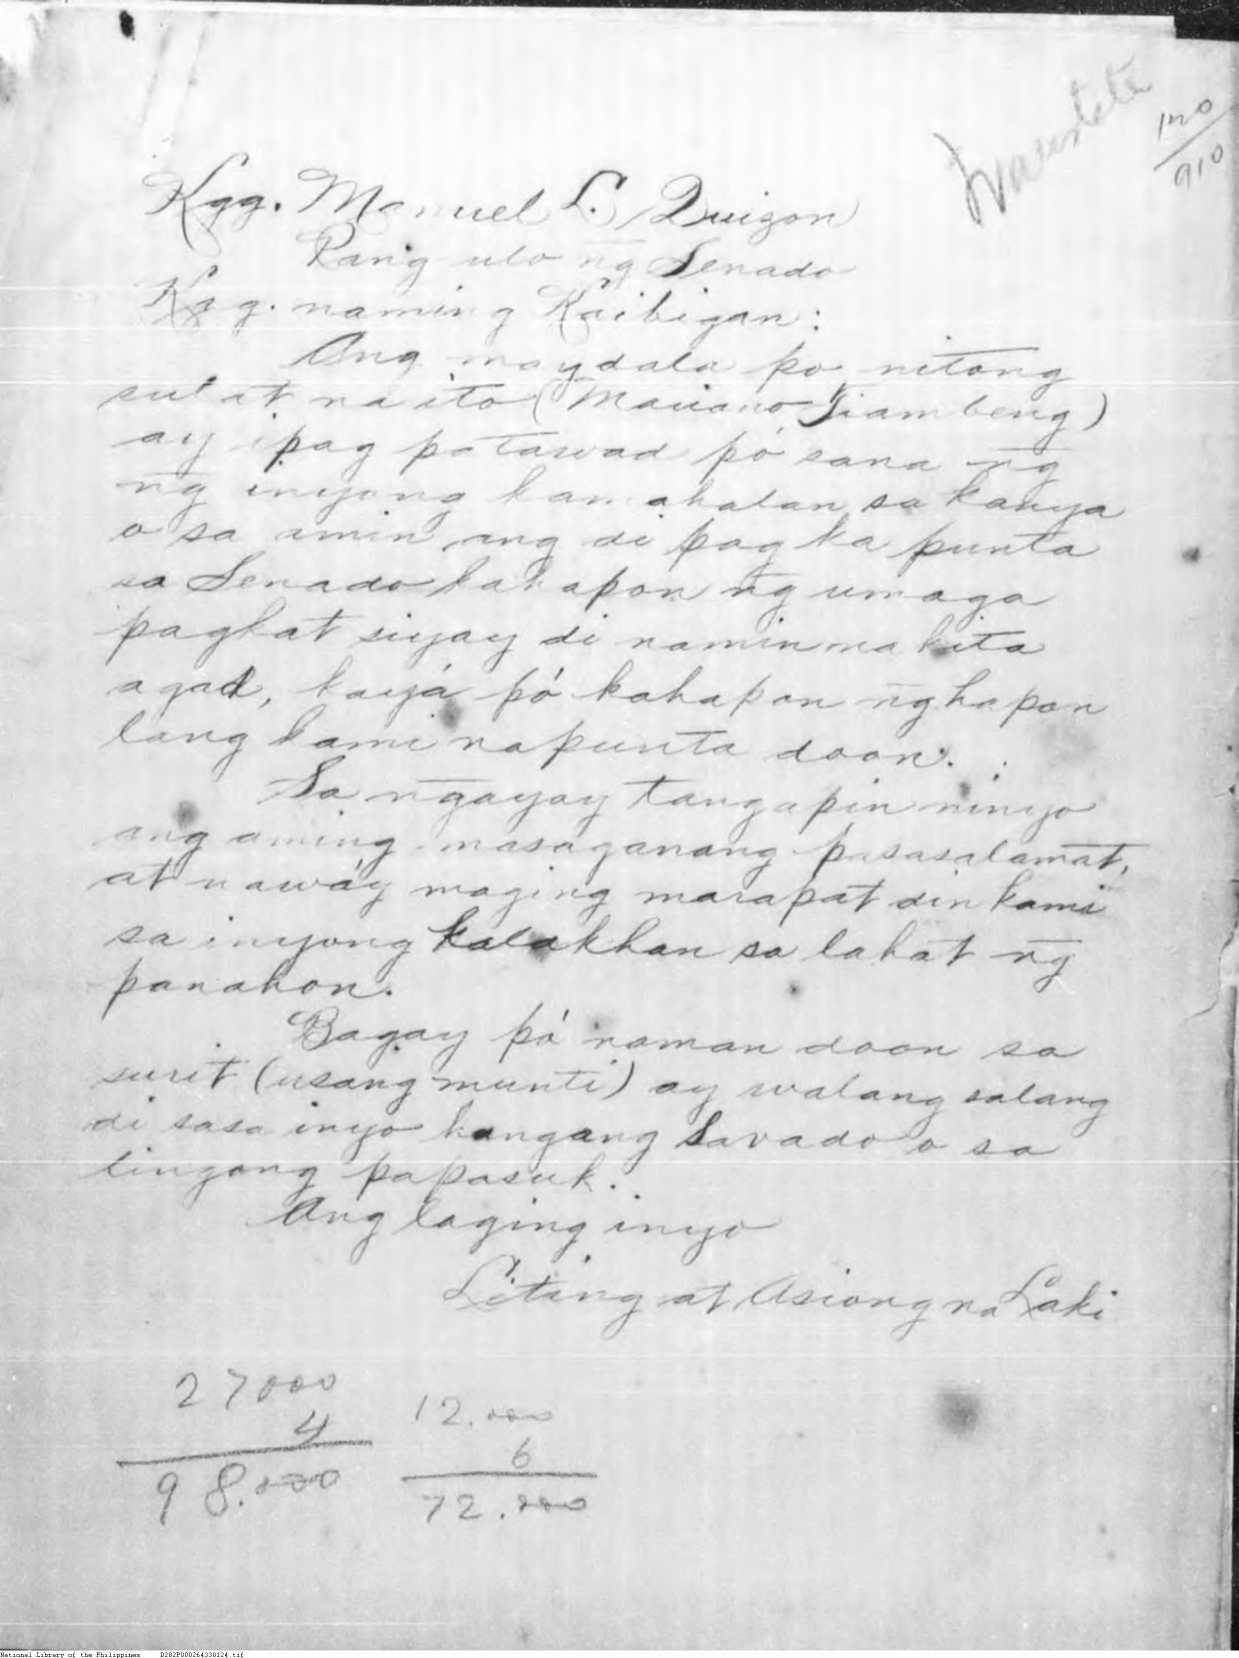 120
910
Kgg. Manuel L. Quizon
Pang ulo ng Senado
Kgg. naming Kaibigan:
Ang maydala po nitong
sulat na ito (Mariano Tiambeng)
ay ipag patawad pó sana n̄g
n̄g inyong kamahalan sa kanya
o sa amin ang di pag ka punta
sa Senado kahapon n̄g umaga
pagkat siyay di namin nakita
agad, kayá pó kahapon n̄g hapon
lang kami napunta doon.
Sa n̄gayoy tangapin ninyo
ang aming masaganang pasasalamat,
at nawáy maging marapat din kami
sa inyong kalakhan sa lahat n̄g
panahon.
Bagay pó naman doon sa
surit (usang munti) ay walang salang
di sasa inyo kangang Savado o sa
lingong papasuk.
Ang laging inyo
Liting at Asiong na Laki
27000
4
98.000
12.000
6
72.000
National Library of the Philippines D282P000264338124.tif